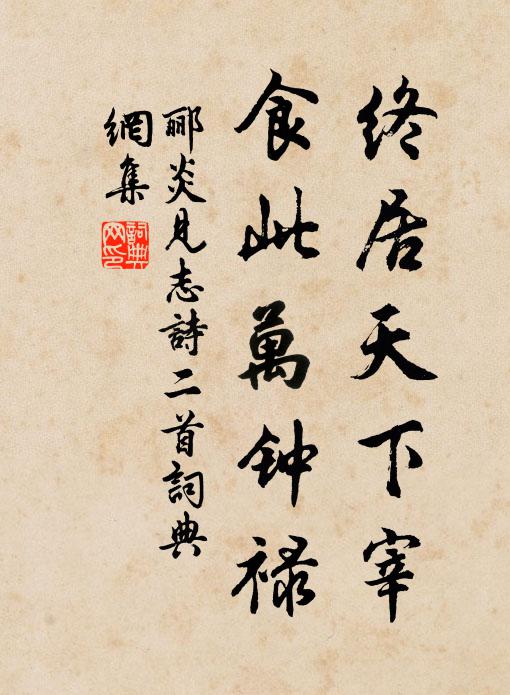 终居天下宰
食此萬钟禄
郦炎見志詩二首詞典
網集
詞典
网印